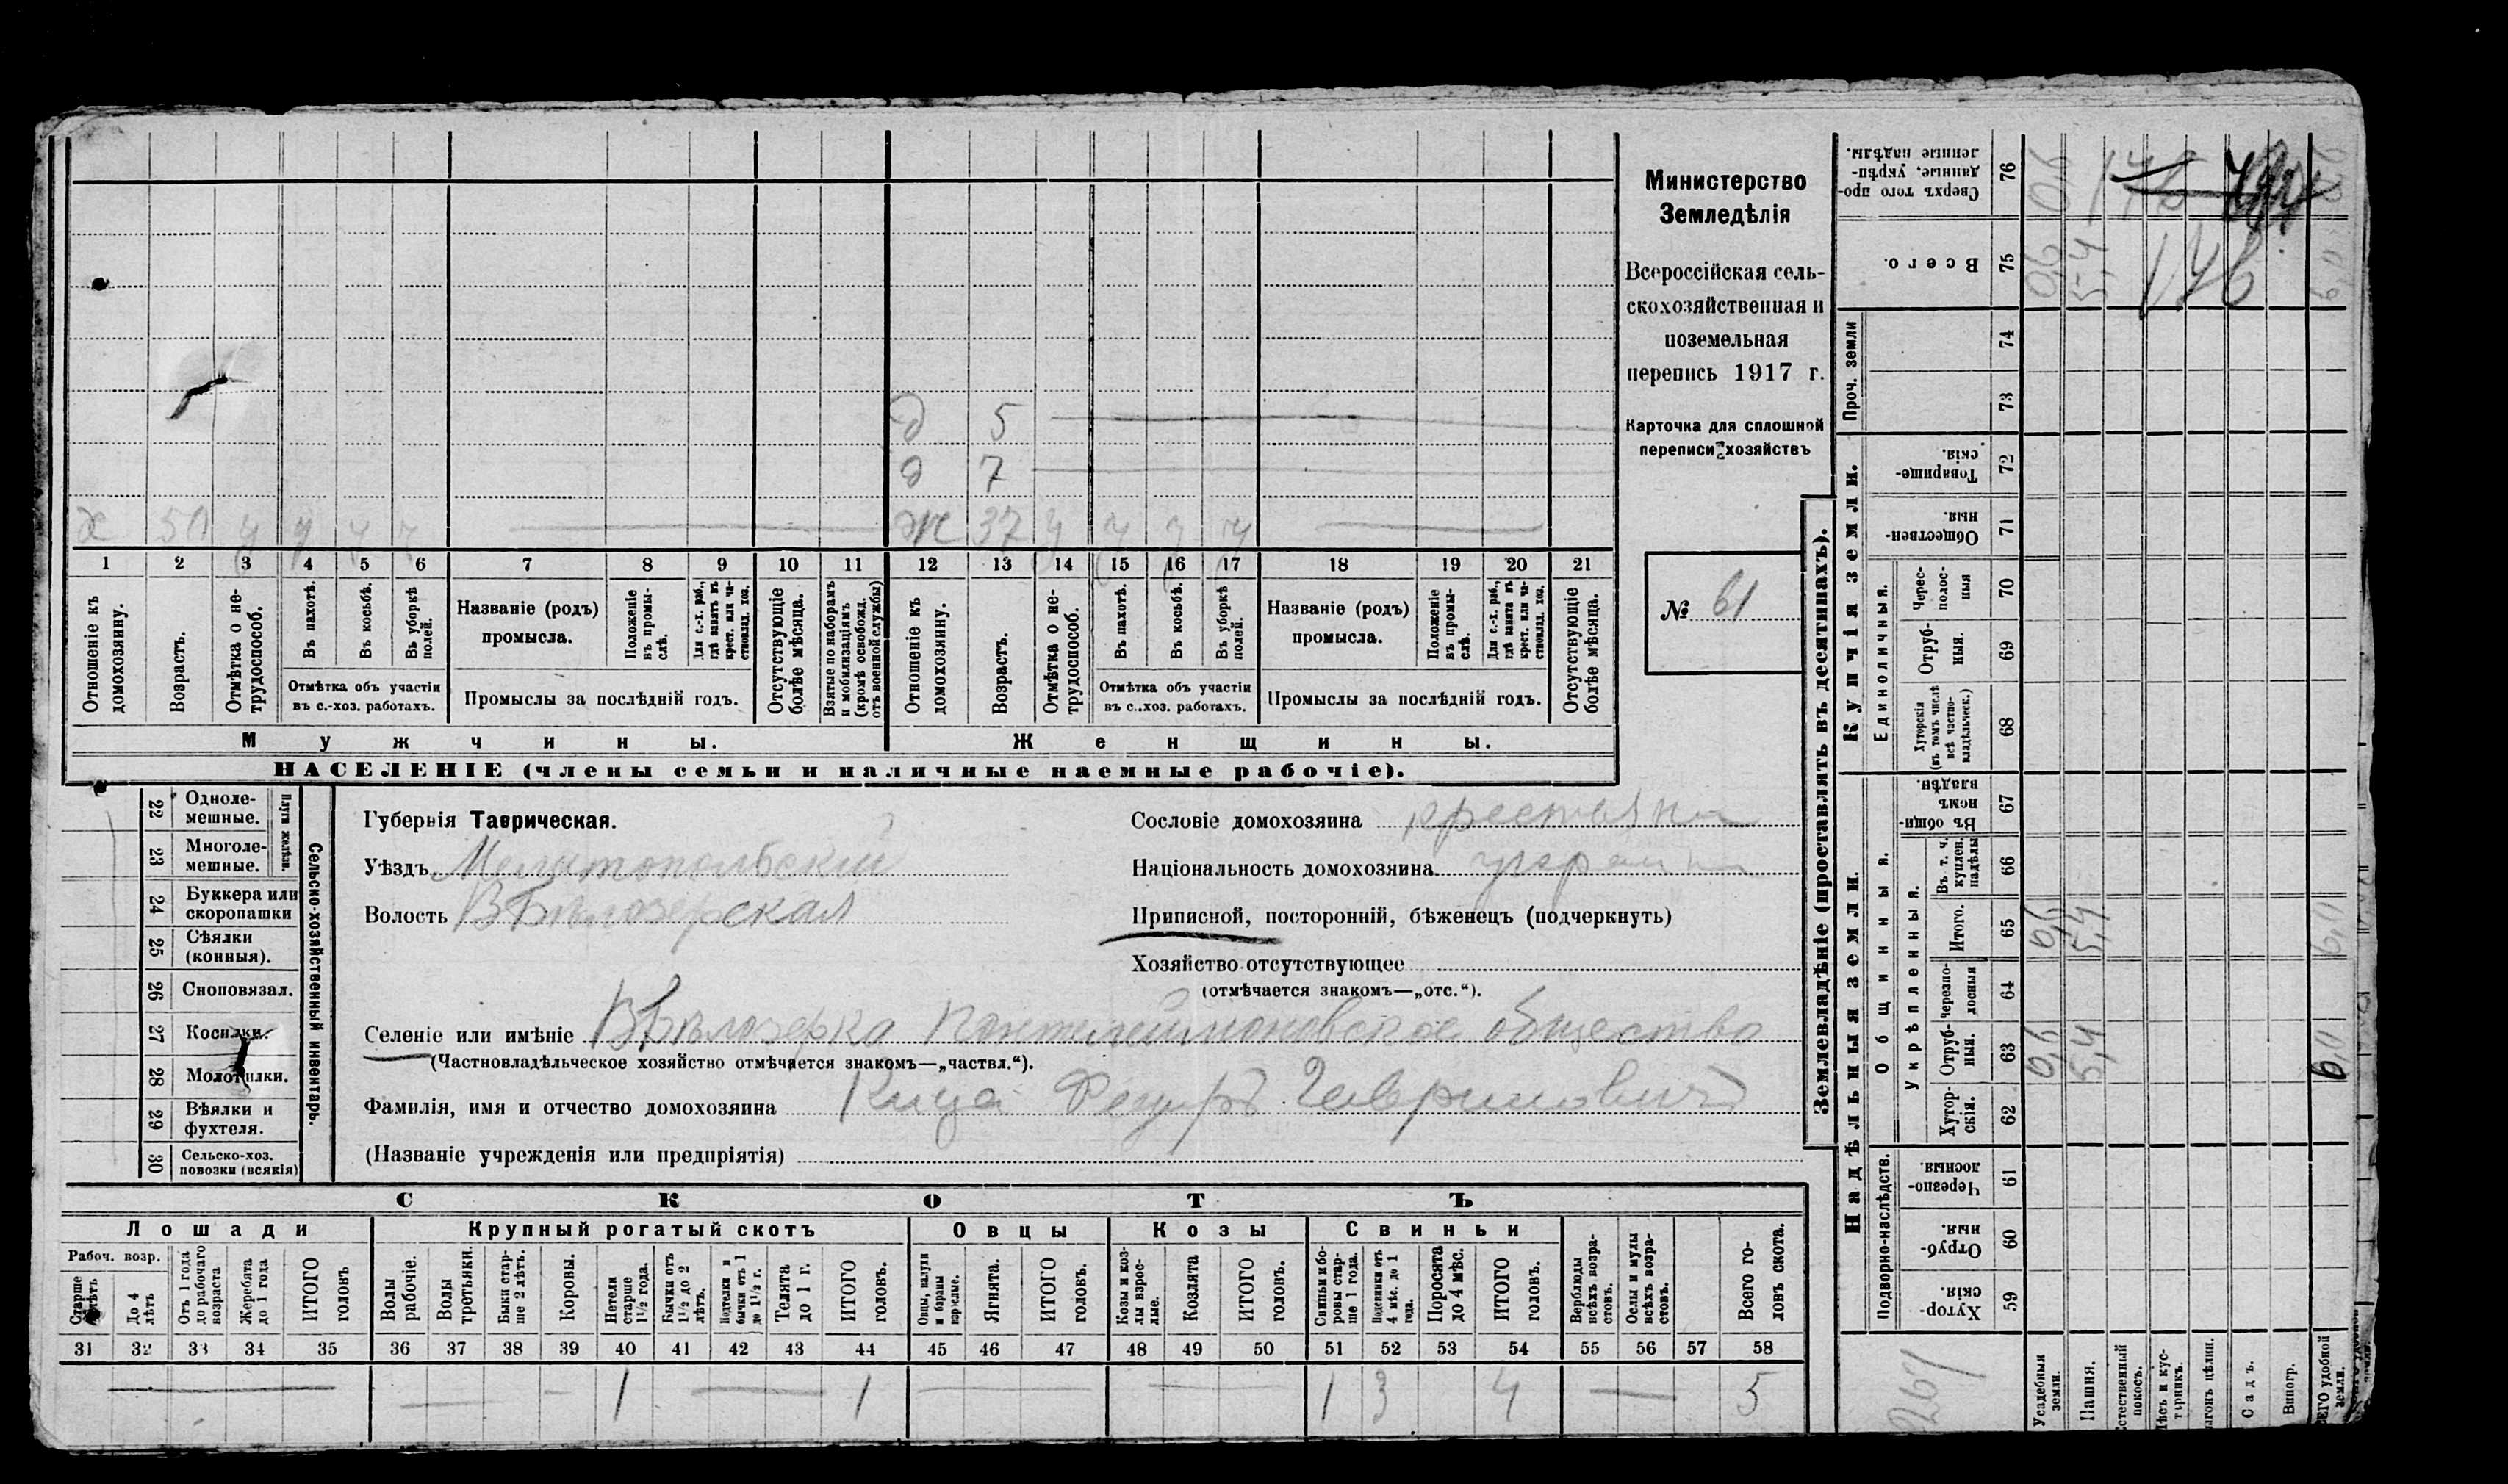 Министерство
Земледѣлія
Всероссійская сель-
скохозяйственная и
поземельная
перепись 1917 г.
Карточка для сплошной
переписи хозяйствъ
№ 61
д 5
д 7
х 50 ч ч ч ч Ж 37 ч ч ч ч
1 2 3 4 5 6 7 8 9 10 11 12 13 14 15 16 17 18 19 20 21
Отношеніе къ домохозяину.
Возрастъ.
Отмѣтка о не-трудоспособ.
Въ пахотѣ.
Въ косьбѣ.
Въ уборкѣ полей.
Отмѣтка объ участіи
въ с.-хоз. работахъ.
Названіе (родъ)
промысла.
Положеніе въ промы-слѣ.
Для с.-х. раб., гдѣ занятъ въ крест. или ча-стновлад. хоз.
Промыслы за послѣдній годъ.
Отсутствующіе болѣе мѣсяца.
Взятые по наборамъ и мобилизаціямъ (кромѣ освобожд. отъ военной службы)
Отношеніе къ домохозяину.
Возрастъ.
Отмѣтка о не-трудоспособ.
Въ пахотѣ.
Въ косьбѣ.
Въ уборкѣ полей.
Отмѣтка объ участіи
въ с.-хоз. работахъ.
Названіе (родъ)
промысла.
Положеніе въ промы-слѣ.
Для с.-х. раб., гдѣ занята въ крест. или ча-стновлад. хоз.
Промыслы за послѣдній годъ.
Отсутствующіе болѣе мѣсяца.
Мужчины. Женщины.
НАСЕЛЕНІЕ (члены семьи и наличные наемные рабочіе).
Сельско-хозяйственный инвентарь.
Плуги желѣзн.
22 Одноле-мешные.
23 Многоле-мешные.
24 Буккера или скоропашки
25 Сѣялки (конныя).
26 Сноповязал.
27 Косилки.
28 Молотилки.
29 Вѣялки и фухтеля.
30 Сельско-хоз. повозки (всякія)
Губернія Таврическая.
Уѣздъ Мелитопольскій
Волость В Бѣлозерская
Сословіе домохозяина крестьянин
Національность домохозяина украин
Приписной, посторонній, бѣженецъ (подчеркнуть)
Хозяйство отсутствующее
(отмѣчается знакомъ—„отс.“).
Селеніе или имѣніе В Бѣлозерка Пантелеймоновское общество
(Частновладѣльческое хозяйство отмѣчается знакомъ—„частвл.“).
Фамилія, имя и отчество домохозяина Кица Федоръ Гавриловичъ
(Названіе учрежденія или предпріятія)
СКОТЪ
Лошади Крупный рогатый скотъ Овцы Козы Свиньи
Рабоч. возр.
Старше 4 лѣтъ
До 4 лѣтъ
Отъ 1 года до рабочаго возраста
Жеребята до 1 года
ИТОГО головъ
Волы рабочіе.
Волы третьяки.
Быки стар-ше 2 лѣтъ.
Коровы.
Нетели старше 1½ года.
Бычки отъ 1½ до 2 лѣтъ.
Подтелки и бычки отъ 1 до 1½ г.
Телята до 1 г.
ИТОГО головъ.
Овцы, валухи и бараны взрослые.
Ягнята.
ИТОГО головъ.
Козы и коз-лы взрос-лые.
Козлята
ИТОГО головъ.
Свиньи и бо-ровы стар-ше 1 года.
Подсвинки отъ 4 мѣс. до 1 года.
Поросята до 4 мѣс.
ИТОГО головъ.
Верблюды всѣхъ возра-стовъ.
Ослы и мулы всѣхъ возра-стовъ.
Всего го-ловъ скота.
31 32 33 34 35 36 37 38 39 40 41 42 43 44 45 46 47 48 49 50 51 52 53 54 55 56 57 58
1 1 1 3 4 5
Землевладѣніе (проставлять въ десятинахъ).
Надѣльныя земли.
Купчія земли.
Проч. земли
Подворно-наслѣдств.
Общинныя.
Укрѣпленныя.
Единоличныя.
Хутор-скія. 59
Отруб-ныя. 60
Черезпо-лосныя 61
Хутор-скія. 62
Отруб-ныя. 63
Черезпо-лосныя 64
Итого. 65
Въ т. ч. куплен. надѣлы 66
Въ общин-номъ владѣн. 67
Хуторскія (въ томъ числѣ всѣ частно-владѣльческ.) 68
Отруб-ныя. 69
Черес-полос-ныя 70
Обществен-ныя. 71
Товарище-скія. 72
73
74
Всего. 75
Сверхъ того про-данные, укрѣп-ленные надѣлы. 76
Усадебныя земли.
Пашня.
Естественный покосъ.
Лѣсъ и кус-тарникъ.
Выгонъ цѣлин.
Садъ.
Виногр.
ВСЕГО удобной земли.
0,6 0,6 0,6
5,4 5,4 5,4
6,0 6,0 6,0
176
267